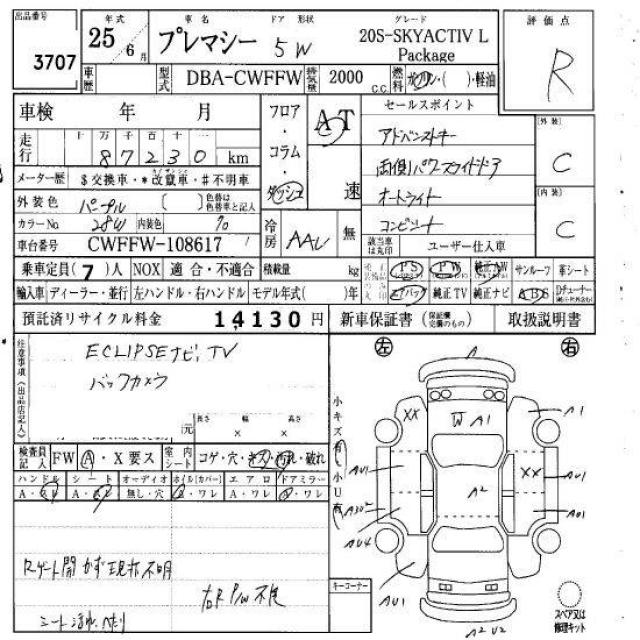 出品番号 年式 車名 ドア 形状 グレード 評価点
3707 25年 6月 プレマシー 5W 20S-SKYACTIV L Package R
車歴 型式 DBA-CWFFW 排気量 2000 C.C. 燃料 ガソリン・( )・軽油
車検 年 月 フロア・コラム・ダッシュ AT 速 セールスポイント
アドバンストキー
走行 十万千百十 87230 km
両側パワースライドドア
[外装] C
メーター歴 $交換車・*改竄車・#不明車
オートライト
外装色 パープル ( ) 色替は色替車と記入
コンビシート
[内装] C
カラーNo 28W 内装色 70
冷房 AAC 無
該当車は丸印 ユーザー仕入車
車台番号 CWFFW-108617
乗車定員(7)人 NOX 適合・不適合 積載量 kg PS PW 純正AW サンルーフ 革シート
輸入車 ディーラー・並行 左ハンドル・右ハンドル モデル年式( )年 エアバッグ 純正TV 純正ナビ ABS Dチューナー
預託済リサイクル料金 14,130円 新車保証書(保証欄交換のもの) 取扱説明書
注意事項(出品店記入)
ECLIPSEナビ、TV
バックカメラ
長さ 幅 高さ
元 × ×
検査員記入 FW A・X要ス 室内シート コゲ・穴・キズ・汚れ・破れ
ハンドル シート オーディオ ホイル(カバー) エアロ ドアミラー
A・スレ A・スレ 無し・穴 キズ・ワレ A・ワレ A・ワレ
Rゲート開かず現状不明
右F P/W不良
シート汚れ、へたり
左 右
小キズ有 小U有
XX W A1 A1
AU1 XX AU1
A2
A3U2 AU1
AU4
AU1
A2 U2
キーコーナー
スペア又は修理キット